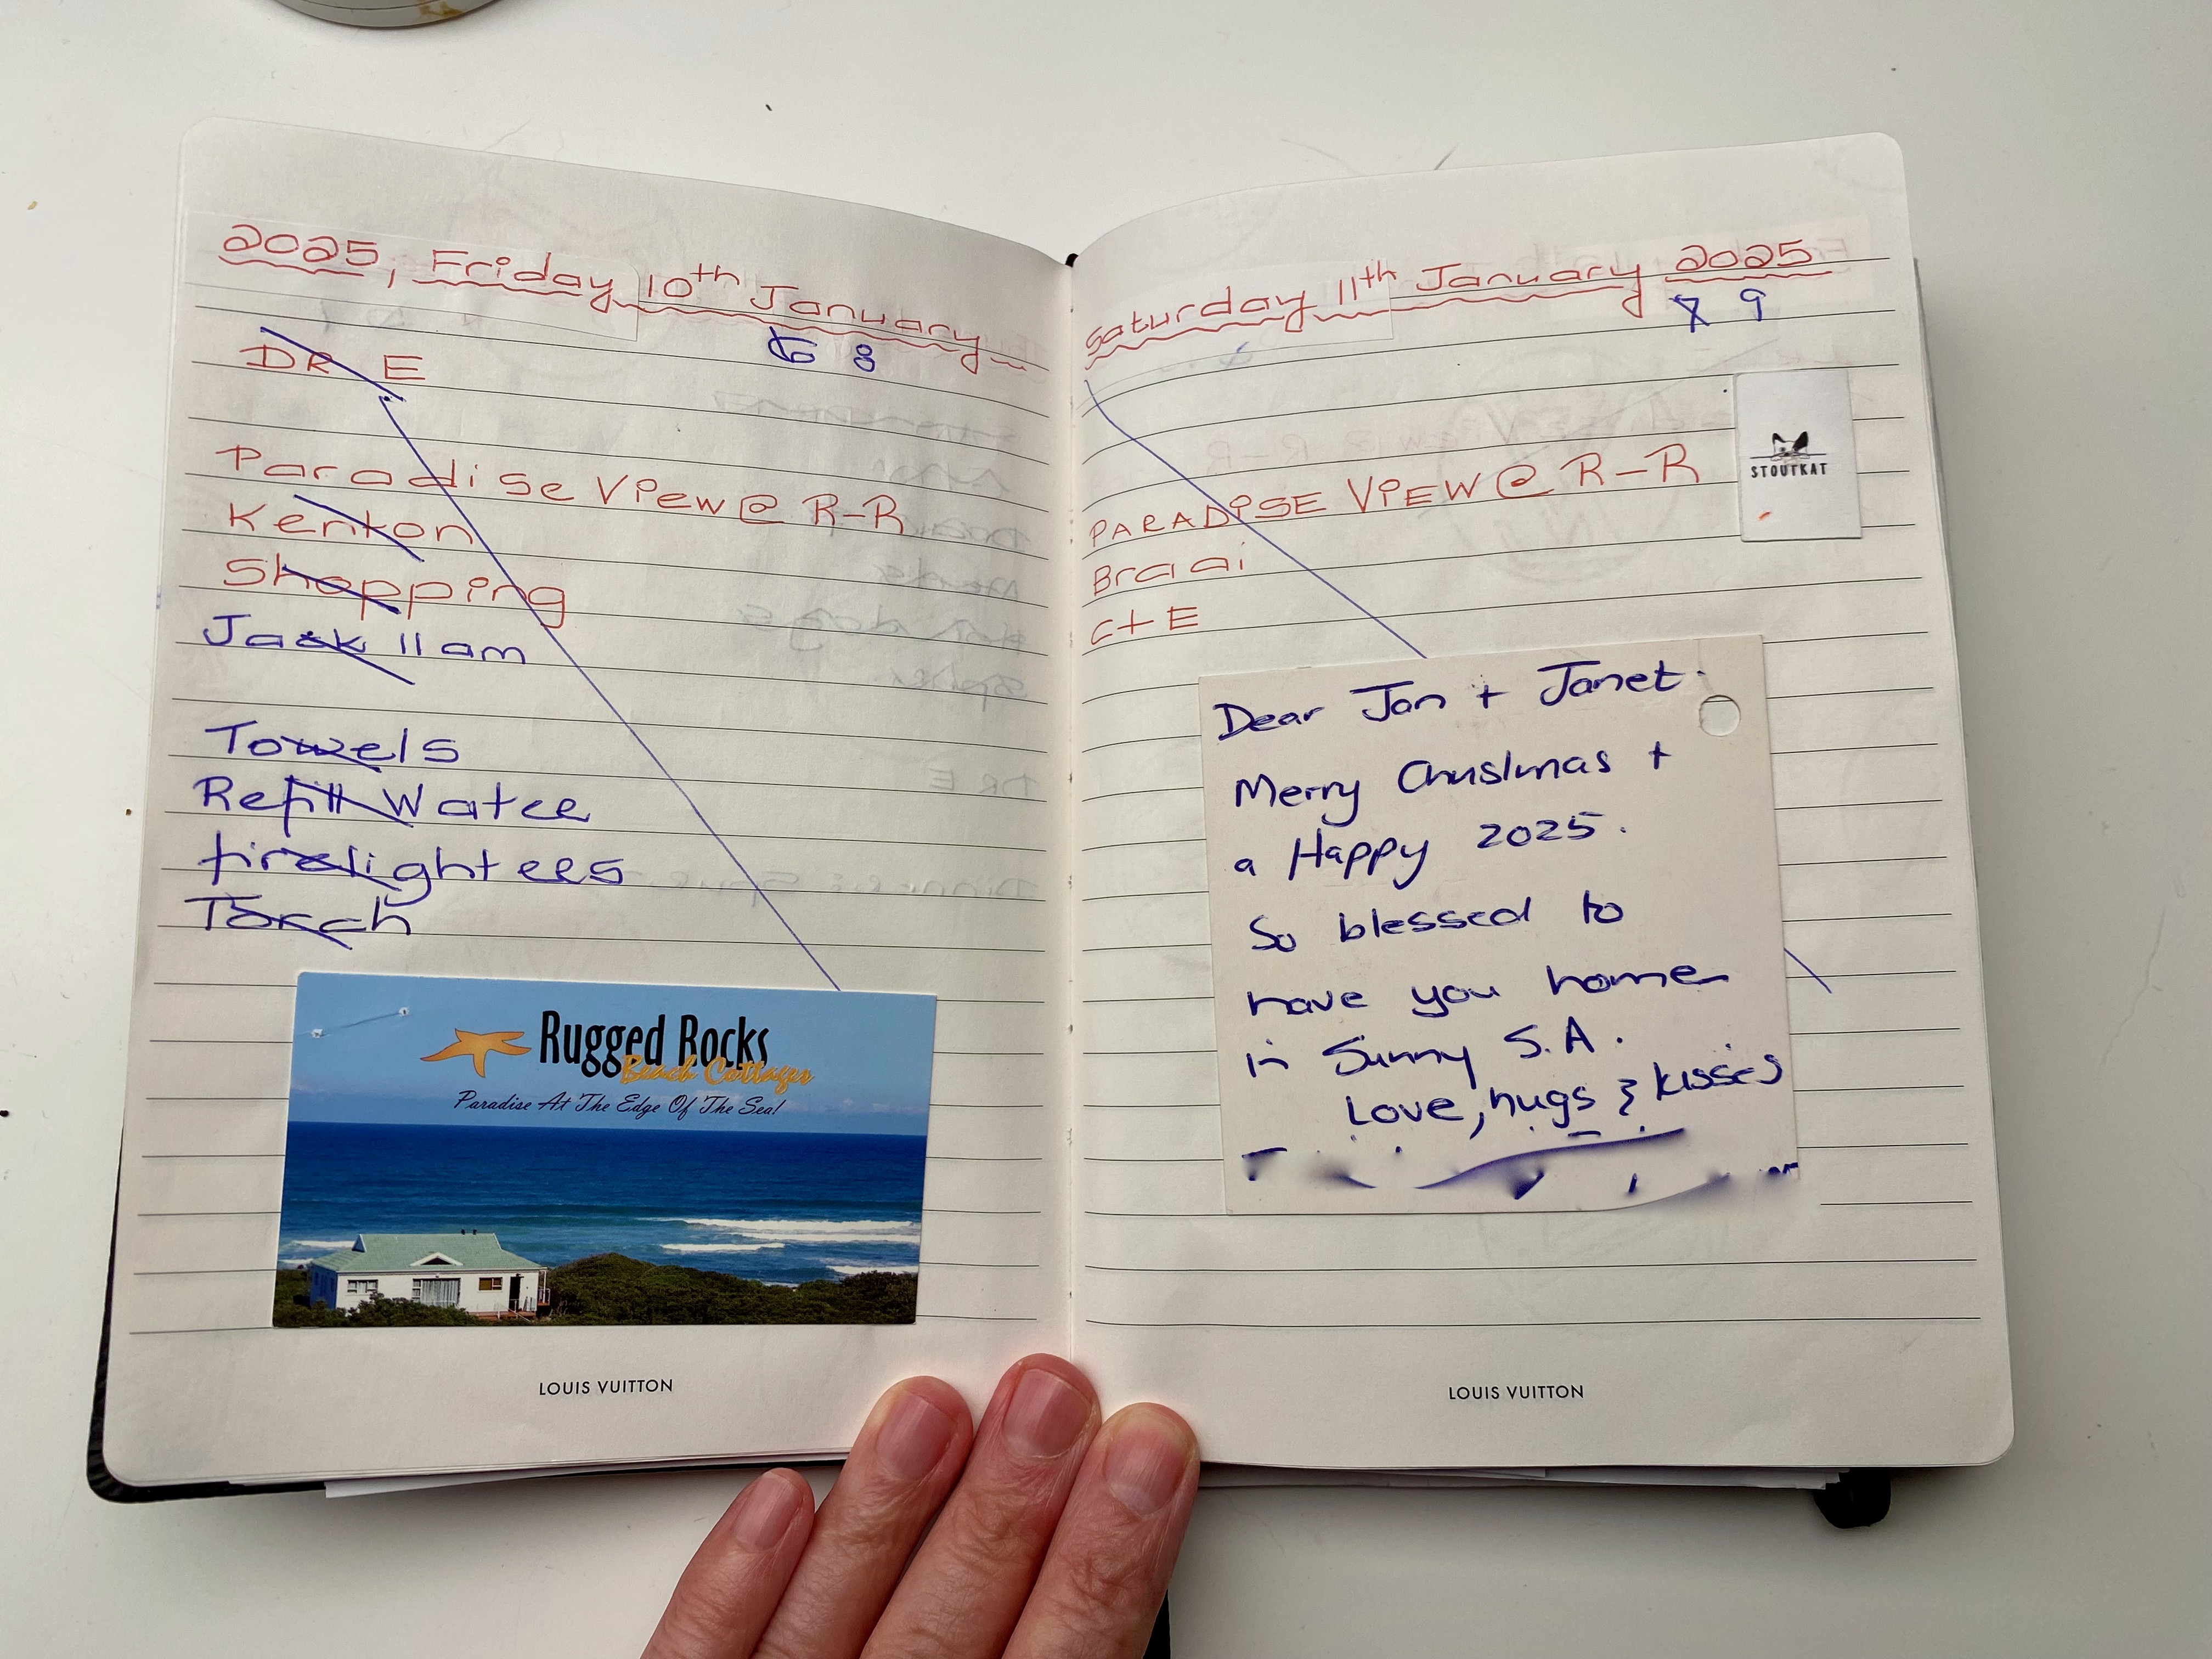 2025, Friday 10th January
6 8
DR E
Paradise View @ R-R
Kenton
Shopping
Jack 11am
Towels
Refill Water
firelighters
Torch
Rugged Rocks
Beach Cottages
Paradise At The Edge Of The Sea!
LOUIS VUITTON
Saturday 11th January 2025
7 9
STOUTKAT
PARADISE VIEW @ R-R
Braai
C+E
Dear Jan + Janet.
Merry Christmas +
a Happy 2025.
So blessed to
have you home
in Sunny S.A.
Love, hugs & kisses
LOUIS VUITTON